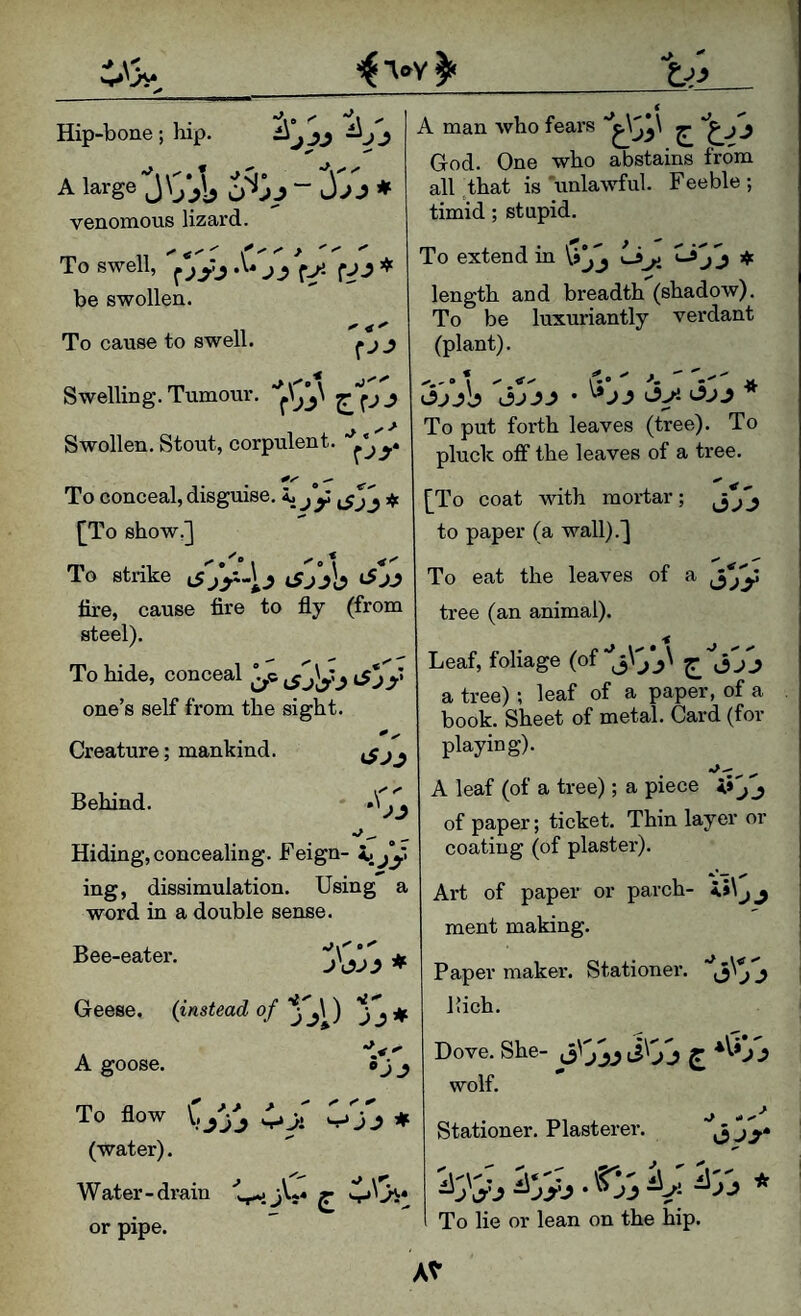 ورع ﴿٦٥٧﴾ وزب
A man who fears وَرِع ج أَوْرَاع
God. One who abstains from
all that is unlawful. Feeble;
timid; stupid.
* وَرَفَ يَرِفُ وَرْفًا To extend in
length and breadth (shadow).
To be luxuriantly verdant
(plant).
* وَرَقَ يَرِقُ وَرْقًا. وَوَرَّقَ وَأَوْرَقَ
To put forth leaves (tree). To
pluck off the leaves of a tree.
[To coat with mortar; وَرَّقَ
to paper (a wall).]
To eat the leaves of a تَوَرَّقَ
tree (an animal).
Leaf, foliage (of وَرَق ج أَوْرَاق
a tree); leaf of a paper, of a
book. Sheet of metal. Card (for
playing).
A leaf (of a tree); a piece وَرَقَة
of paper; ticket. Thin layer or
coating (of plaster).
Art of paper or parch- وِرَاقَة
ment making.
Paper maker. Stationer. وَرَّاق
Rich.
Dove. She- وَرْقَاء ج وَرَاقَى وَوِرَاق
wolf.
Stationer. Plasterer. مُوَرِّق
* وَرَكَ يَرِكُ وَرْكًا. وَتَوَرَّكَ وَتَوَارَكَ
To lie or lean on the hip.
Hip-bone; hip. وَرِك وَوِرْك
A large * وَرَل - وِرْلَان وَأَوْرَال
venomous lizard.
To swell, * وَرِمَ يَرِمُ وَرَمًا. وَتَوَرَّمَ
be swollen.
To cause to swell. وَرَّمَ
Swelling. Tumour. وَرَم ج أَوْرَام
Swollen. Stout, corpulent. مُوَرَّم
To conceal, disguise. * وَرَّى تَوْرِيَة
[To show.]
To strike وَرَّى وَأَوْرَى وَاسْتَوْرَى
fire, cause fire to fly (from
steel).
To hide, conceal تَوَرَّى وَتَوَارَى عَنْ
one's self from the sight.
Creature; mankind. وَرًى
Behind. وَرَاءَ
Hiding, concealing. Feign- تَوْرِيَة
ing, dissimulation. Using a
word in a double sense.
Bee-eater. * وَرْوَار
Geese. (instead of إِوَزّ) * وَزّ
A goose. وَزَّة
To flow * وَزَبَ يَزِبُ وُزُوبًا
(water).
Water-drain مِيزَاب ج مَيَازِيب
or pipe.
٨٣